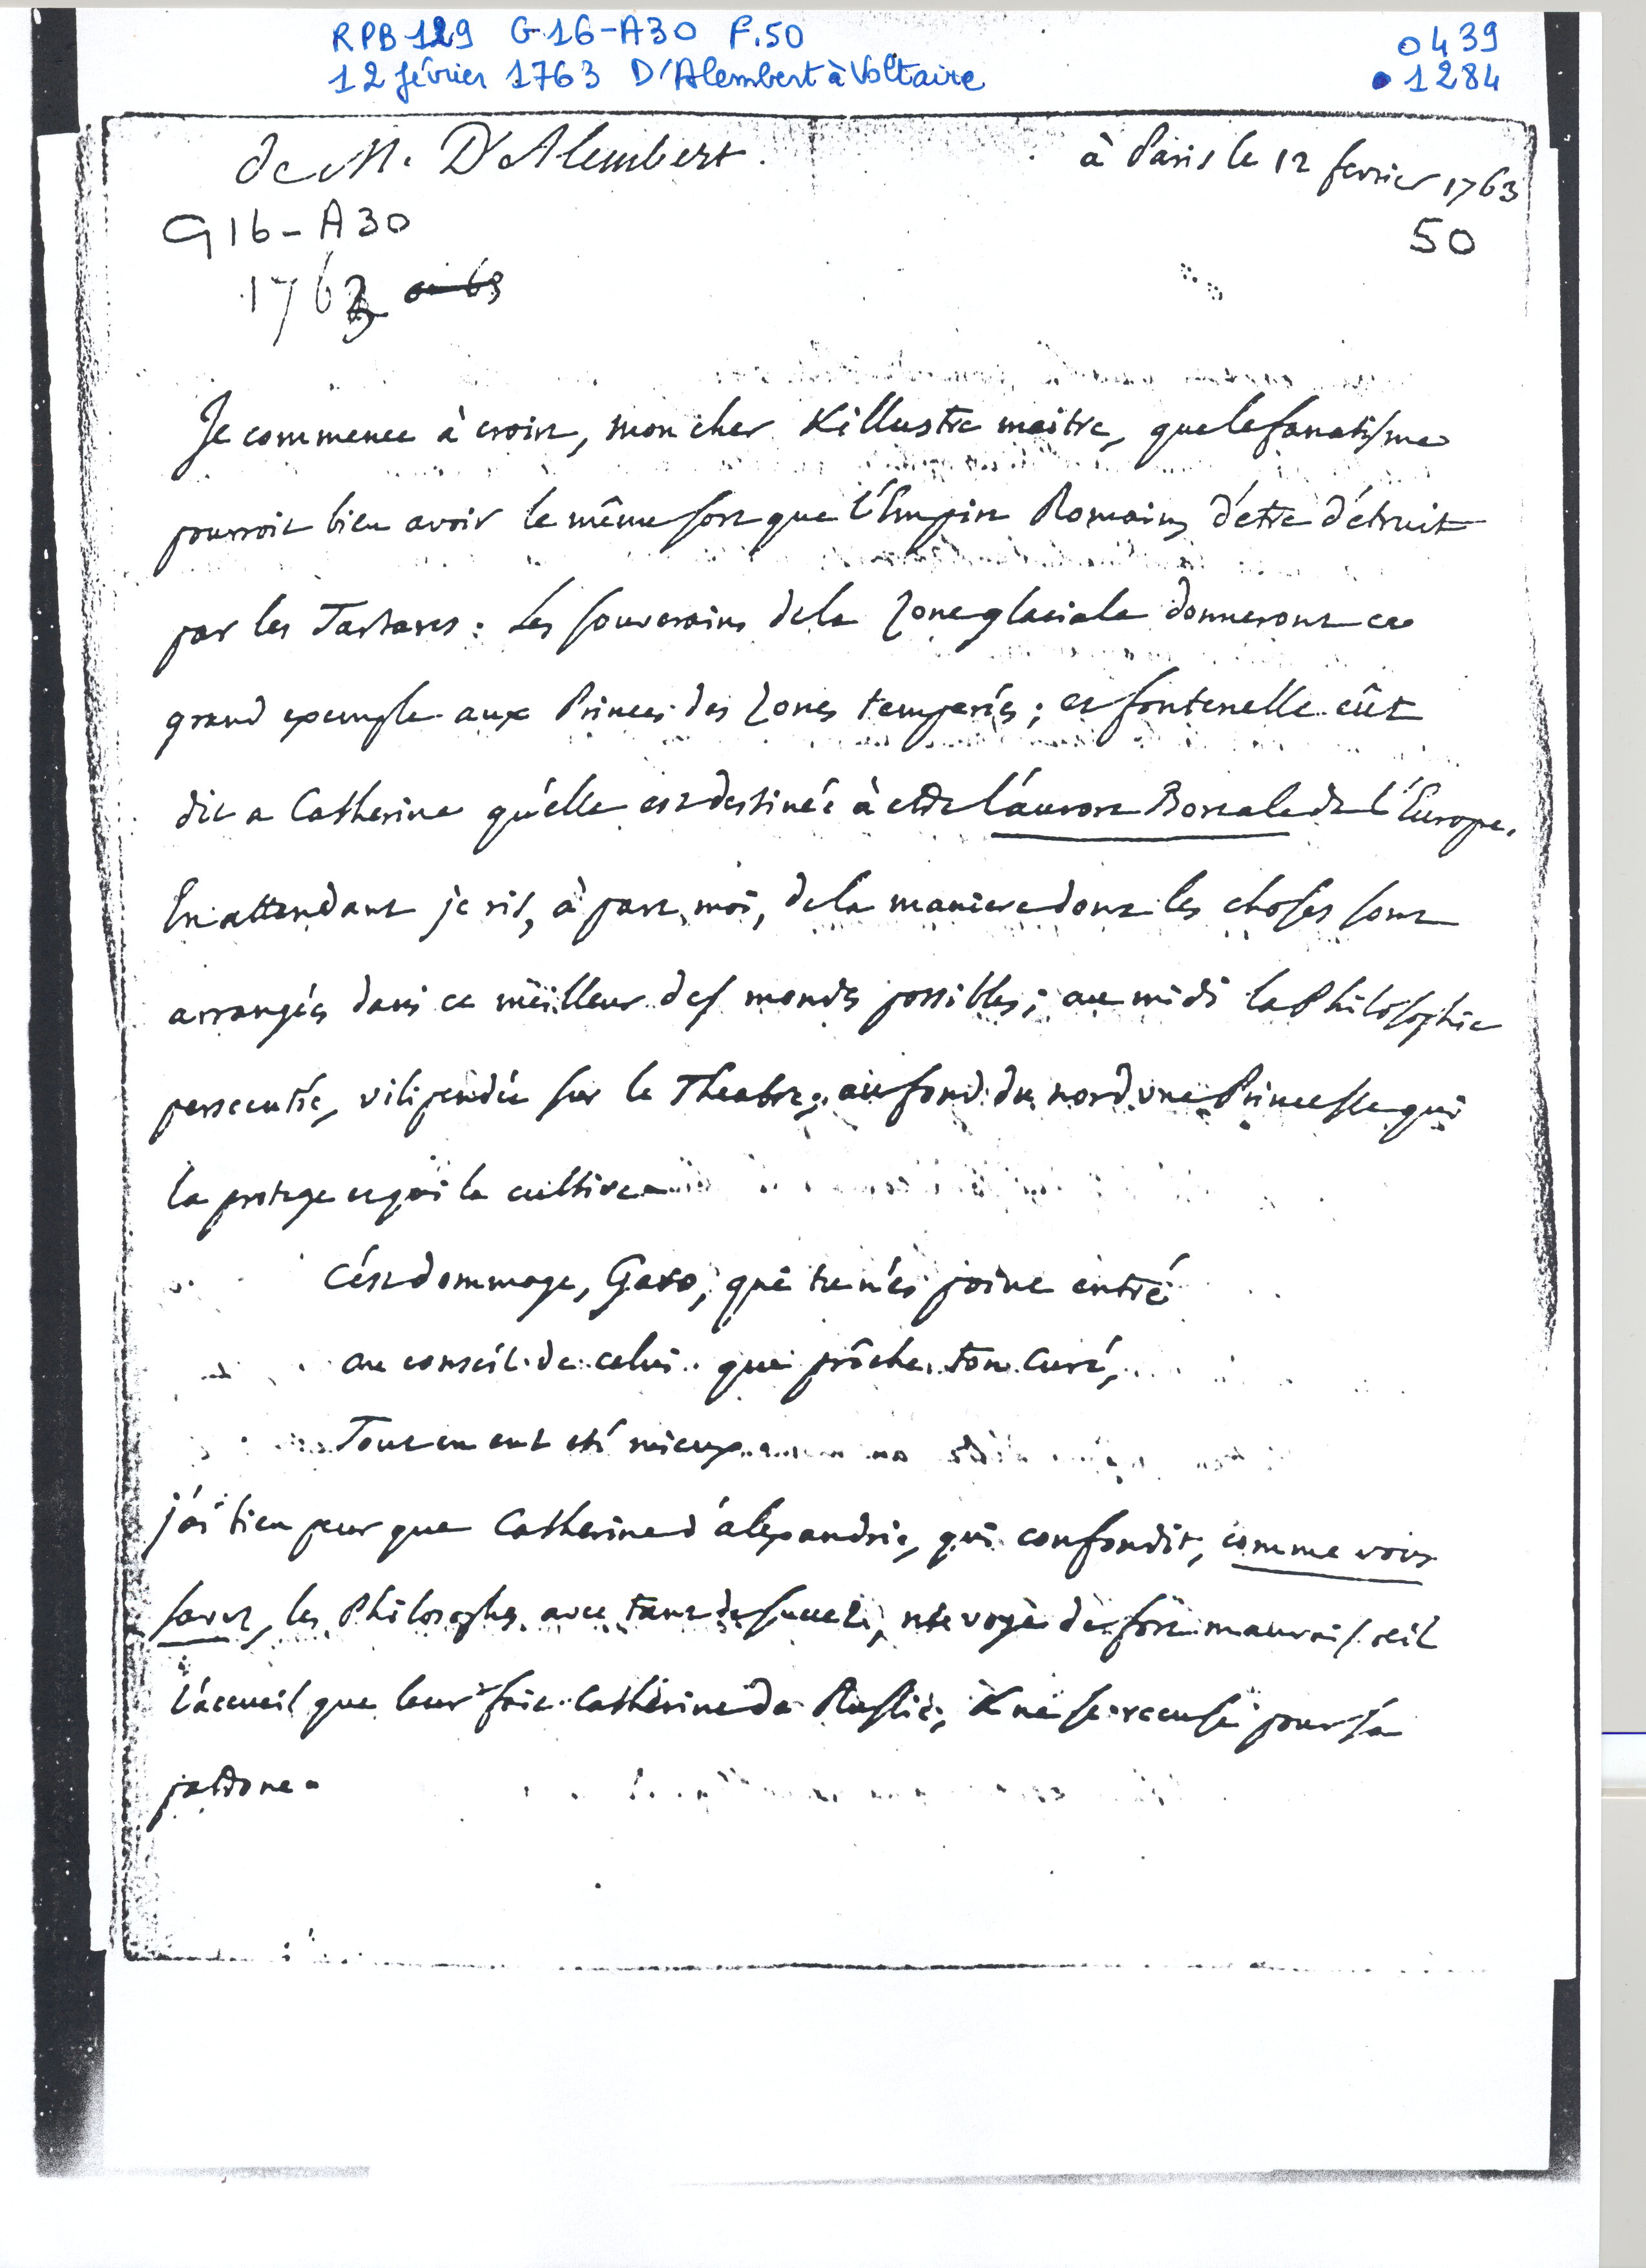 RPB 129 G 16-A30 F.50
0439
12 février 1763 D'Alembert à Voltaire
1284
de M. D'Alembert.
à Paris le 12 fevrier 1763
G16-A30
50
1763 ou 63
Je commence à croire, mon cher & illustre maitre, que le fanatisme
pourroit bien avoir le même sort que l'Empire Romain, d'être détruit
par les Tartares: Les souverains de la Zone glaciale donneront ce
grand exemple aux Princes des Zones temperées; et fontenelle eût
dit a Catherine qu'elle est destinée à etre l'aurore Boreale de l'Europe.
En attendant je ris, à part moi, de la maniere dont les choses sont
arrangées dans ce meilleur des mondes possibles; au midi la Philosophie
persecutée, vilipendée sur le Theatre; au fond du nord une Princesse qui
la protege et qui la cultive.
C'est dommage, Garo, que tu n'es point entré
au conseil de celui que prêche ton Curé,
Tout en eut eté mieux
j'ai bien peur que Catherine d'alexandrie, qui confondit, comme vous
savez, les Philosophes avec tant de succès, ne voye de fort mauvais œil
l'accueil que leur fait Catherine de Russie, & ne se recuse pour sa
patrone.